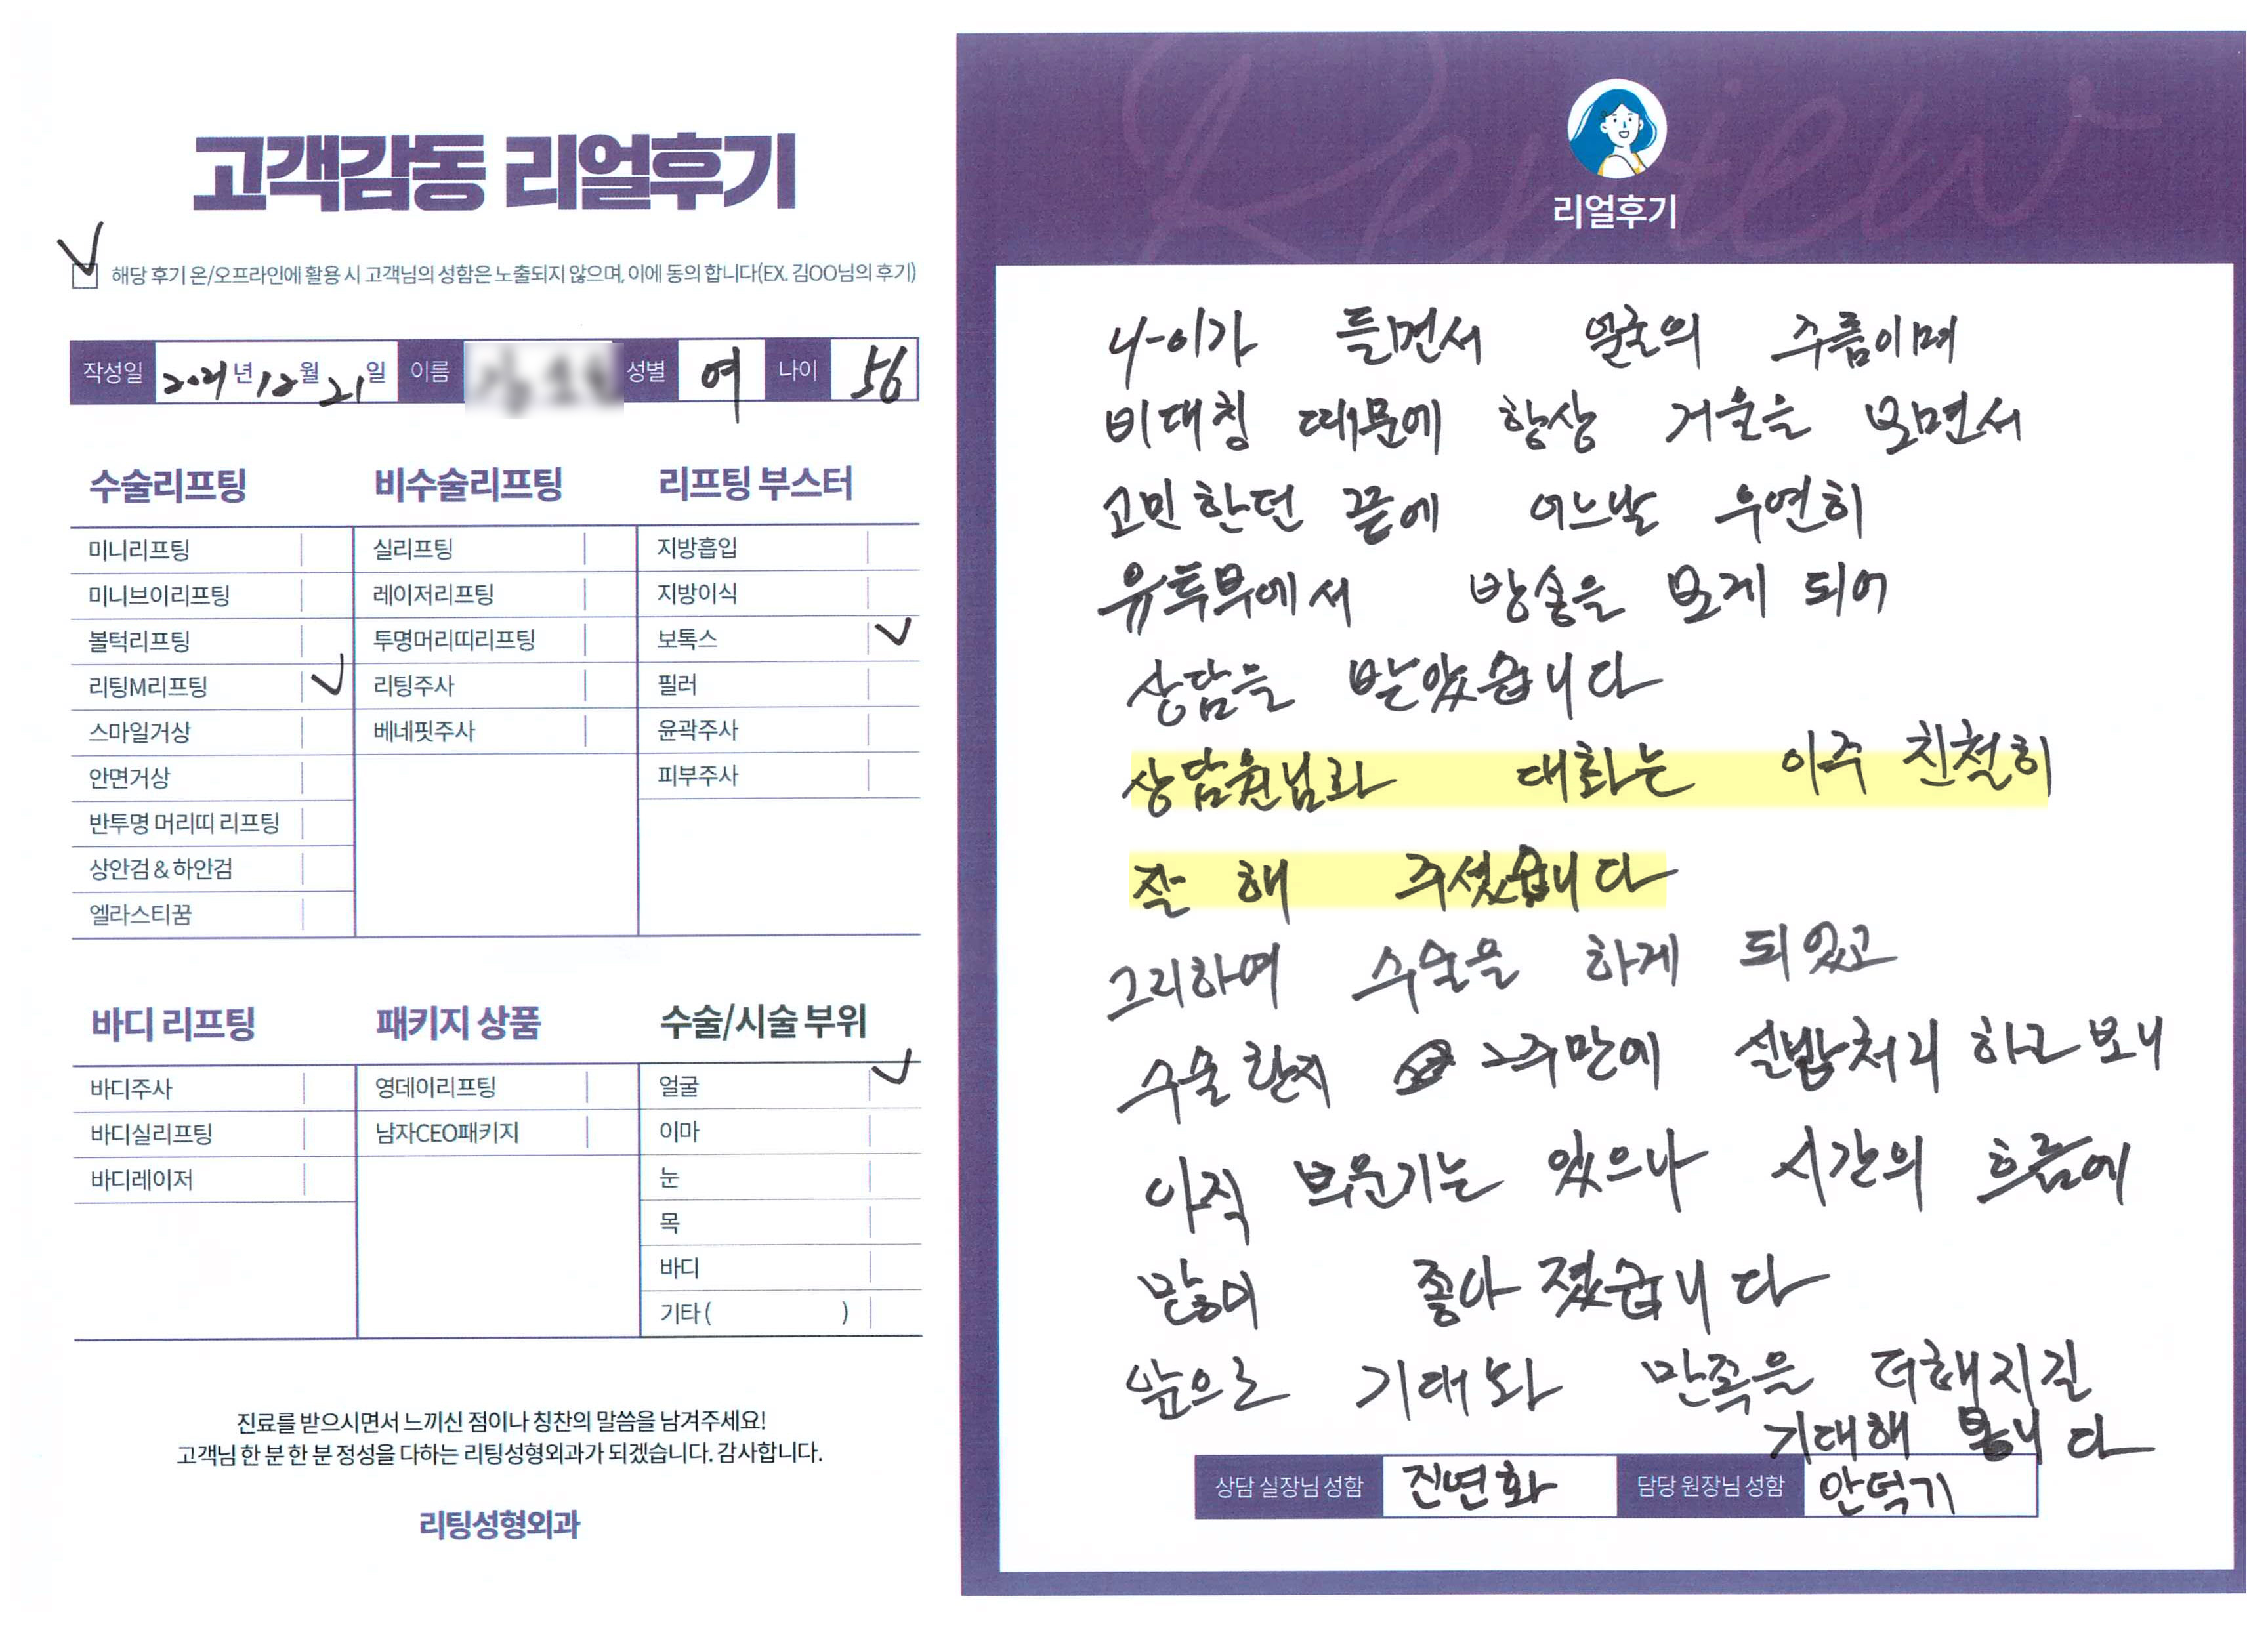 고객감동 리얼후기
해당 후기 온/오프라인에 활용 시 고객님의 성함은 노출되지 않으며, 이에 동의 합니다(EX. 김OO님의 후기)
작성일 2021년 12월 21일 이름 성별 여 나이 56
수술리프팅
미니리프팅
미니브이리프팅
볼턱리프팅
리팅M리프팅
스마일거상
안면거상
반투명 머리띠 리프팅
상안검 & 하안검
엘라스티꿈
비수술리프팅
실리프팅
레이저리프팅
투명머리띠리프팅
리팅주사
베네핏주사
리프팅 부스터
지방흡입
지방이식
보톡스
필러
윤곽주사
피부주사
바디 리프팅
바디주사
바디실리프팅
바디레이저
패키지 상품
영데이리프팅
남자CEO패키지
수술/시술 부위
얼굴
이마
눈
목
바디
기타 ( )
진료를 받으시면서 느끼신 점이나 칭찬의 말씀을 남겨주세요!
고객님 한 분 한 분 정성을 다하는 리팅성형외과가 되겠습니다. 감사합니다.
리팅성형외과
Review
리얼후기
나이가 들면서 얼굴의 주름이며
비대칭 때문에 항상 거울을 보면서
고민한던 끝에 어느날 우연히
유투부에서 방송을 보게 되어
상담을 받았습니다
상담원님과 대화는 아주 친철히
잘 해 주셨습니다
그리하여 수술을 하게 되었고
수술한지 2주만에 실밥처리 하고 보니
아직 부운기는 있으나 시간의 흐름에
많이 좋아 졌습니다
앞으로 기대와 만족을 더해지길
기대해 봅니다
상담 실장님 성함 진연화 담당 원장님 성함 안덕기